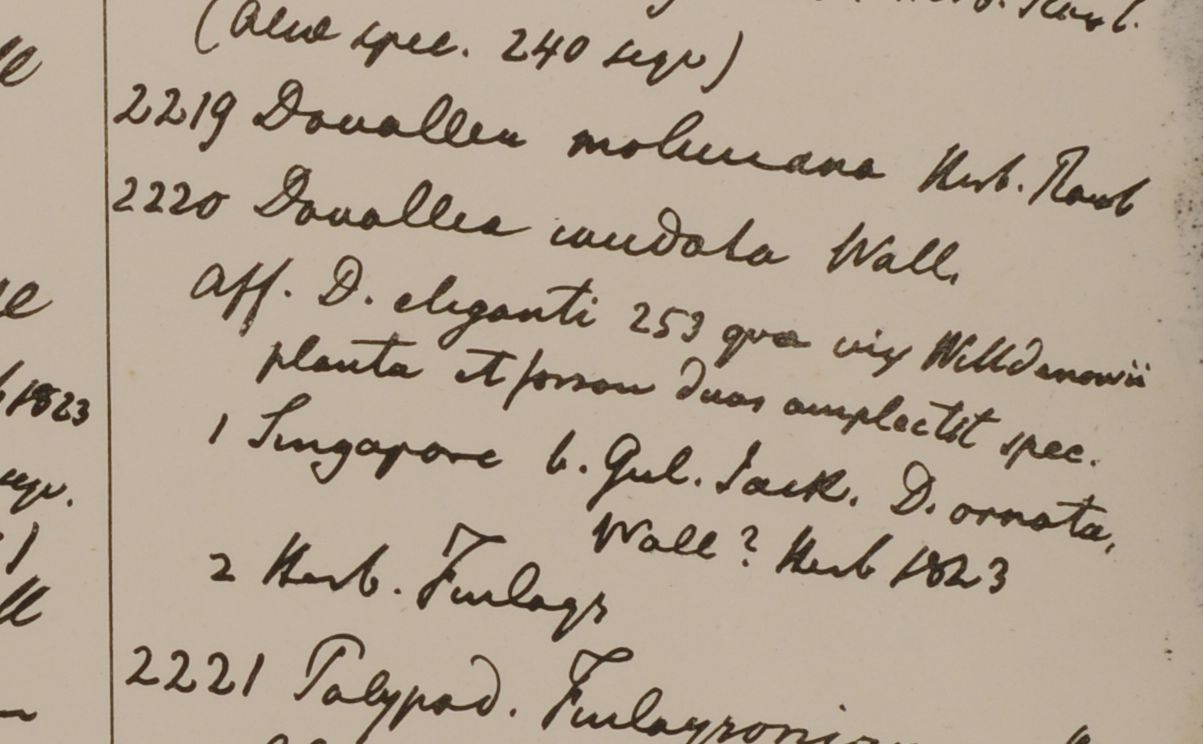 Herb. Roxb.
(Aliae spec. 240 seqv)
2219 Davallea moluccana Herb. Roxb
2220 Davallea caudata Wall.
Aff. D. eleganti 253 qvae vix Willdenowii
planta et forsan duas amplectit spec.
1 Singapore b. Gul. Jack. D. ornata,
Wall? Herb 1823
2 Herb. Finlays
2221 Polypod. Finlaysoni
1823